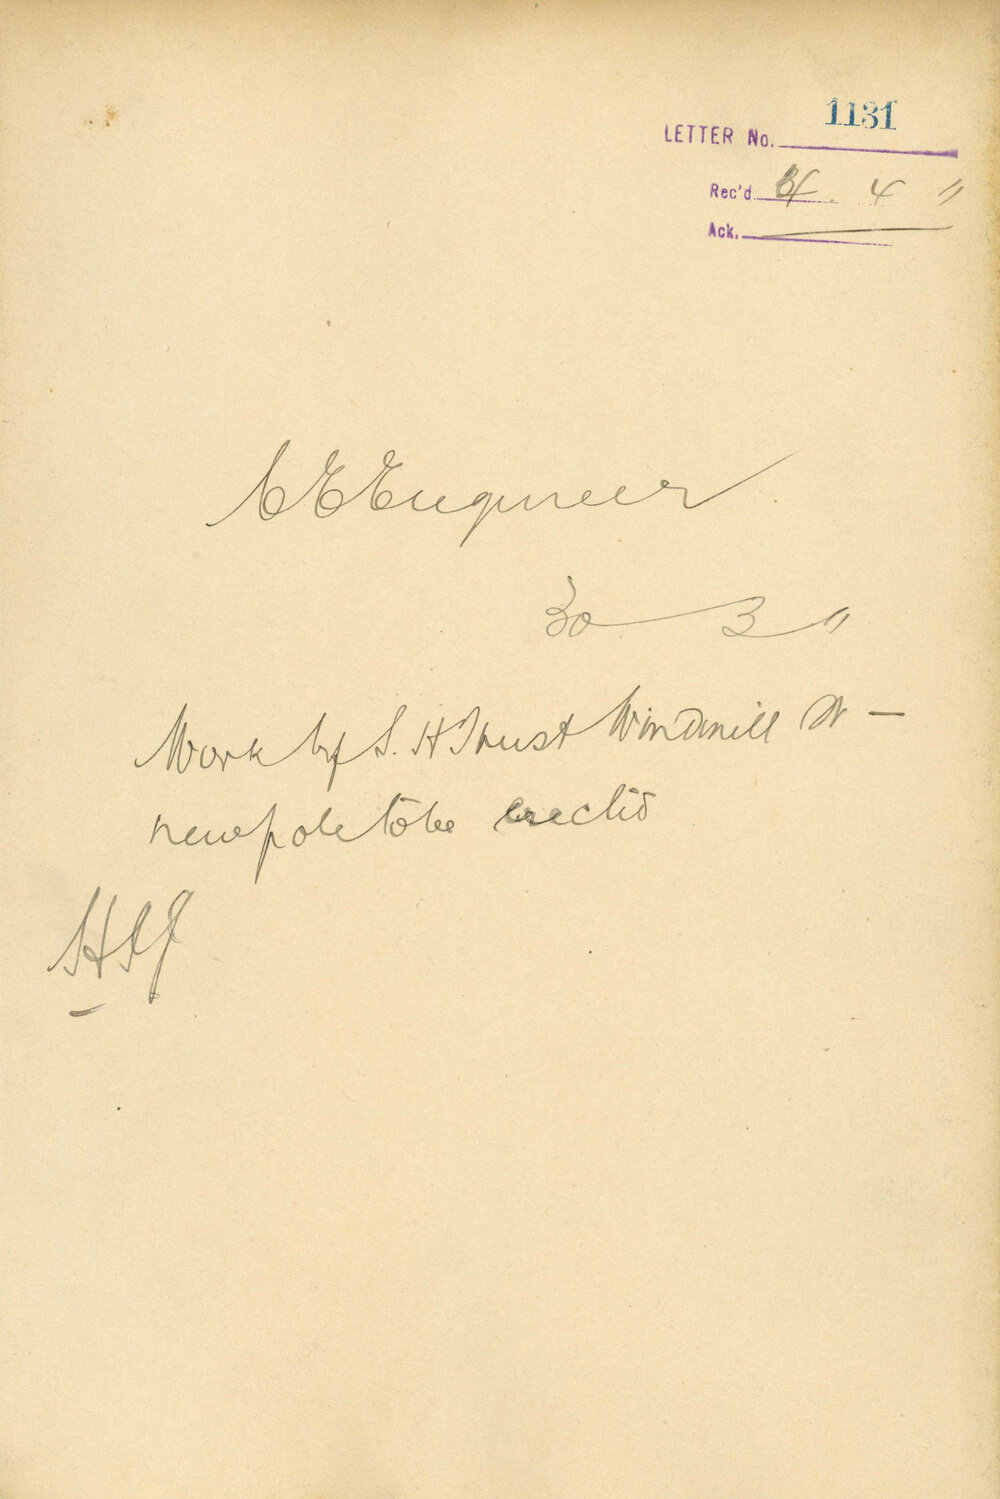 LETTER No. 1131
Rec'd 4. 4 11
Ack.
C E Engineer
30 3 11
Work by S. H Trust Windmill St —
new pole to be erected